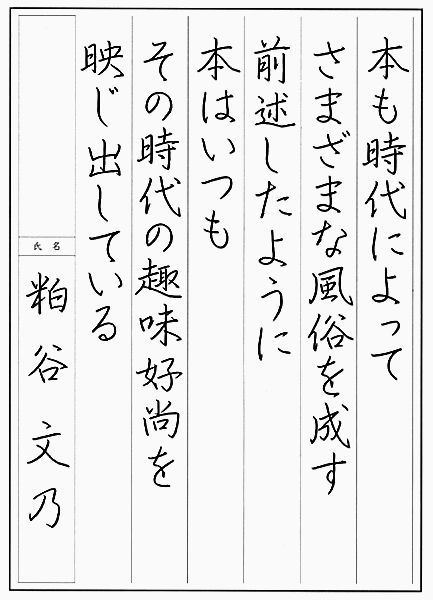 本も時代によって
さまざまな風俗を成す
前述したように
本はいつも
その時代の趣味好尚を
映じ出している
氏名
粕谷文乃